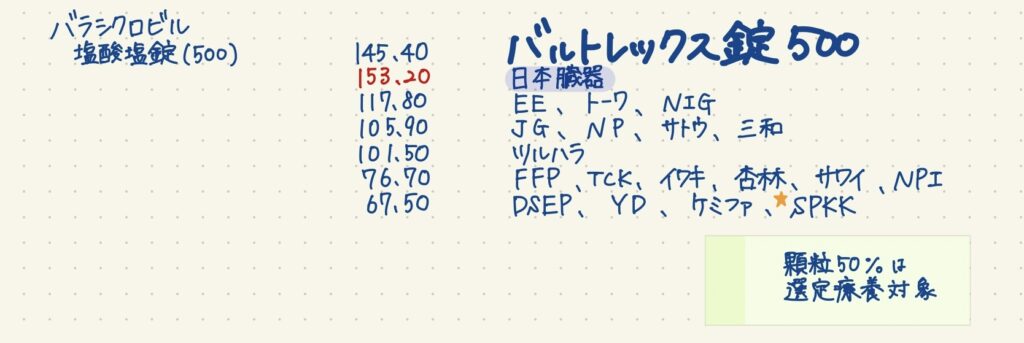 バラシクロビル
塩酸塩錠(500) 145.40 バルトレックス錠500
153.20 日本臓器
117.80 EE、トーワ、NIG
105.90 JG、NP、サトウ、三和
101.50 ツルハラ
76.70 FFP、TCK、イワキ、杏林、サワイ、NPI
67.50 DSEP、YD、ケミファ、SPKK
顆粒50%は
選定療養対象